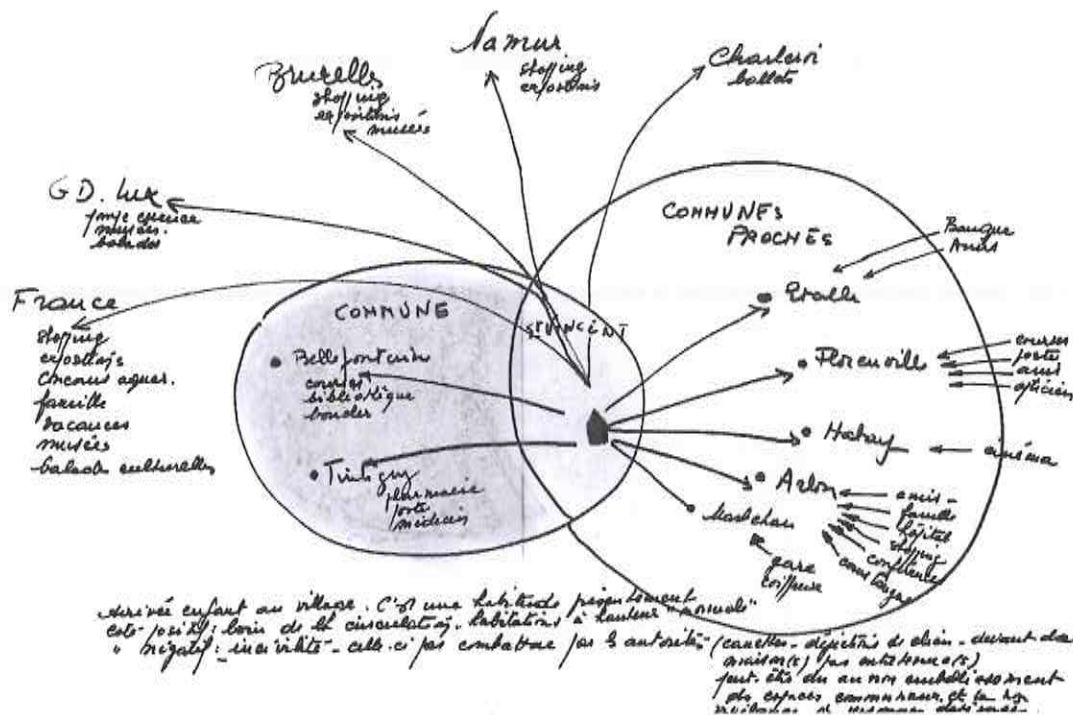 Namur
shopping
expositions
Bruxelles
shopping
expositions
musées
Charleroi
ballets
G.D. Lux
musées
balades
France
shopping
expositions
concours aquar.
famille
vacances
musées
balades culturelles
COMMUNE
St VINCENT
Bellefontaine
courses
bibliothèque
boucher
Tintigny
pharmacie
poste
médecin
COMMUNES
PROCHES
Banque
Amis
Etalle
Florenville
courses
poste
amis
opticien
Habay
cinéma
Arlon
amis
famille
hôpital
shopping
conférences
cours langues
Marbehan
gare
coiffeuse
Arrivée enfant au village. C'est une habitude présentement
coté positif : loin de la circulation. habitations à hauteur "normale"
" négatif : incivilité - celle-ci pas combattue par les autorités (canettes - déjections de chien - devant de
maison(s) pas entretenue(s)
peut-être du au non embellissement
des espaces communaux, et